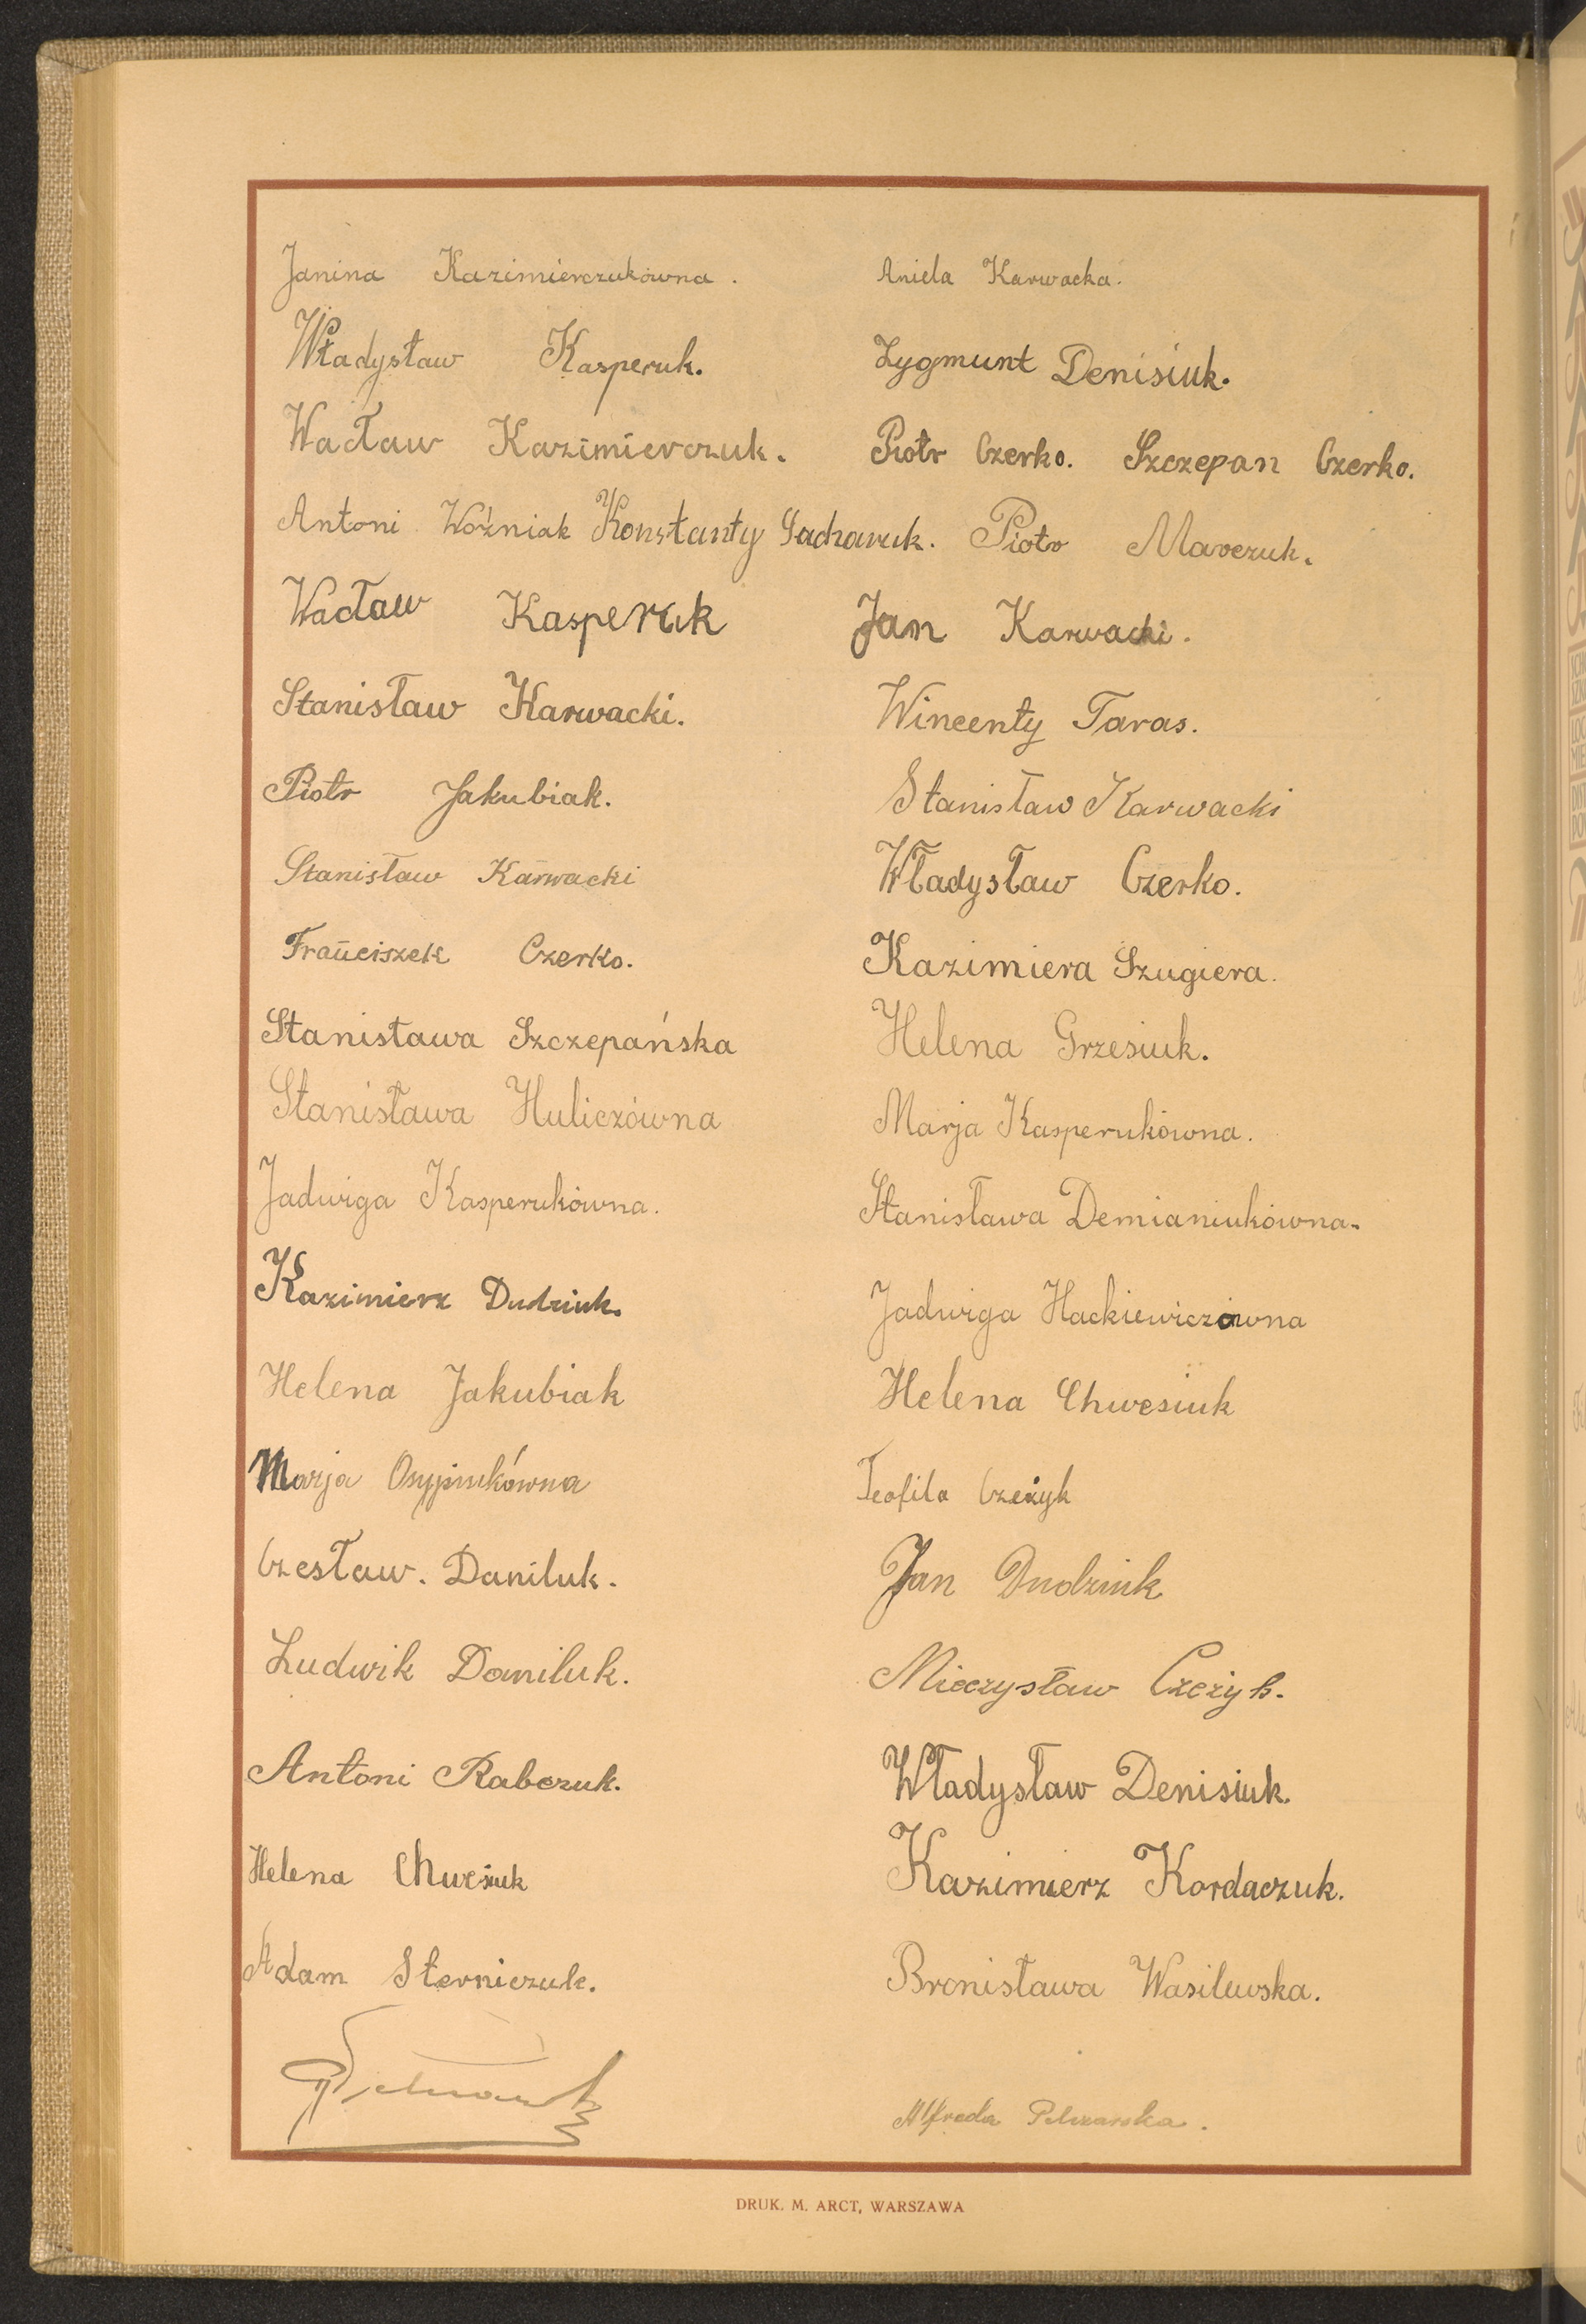 Janina Kazimierczukówna. Aniela Karwacka.
Władysław Kasperuk. Zygmunt Denisiuk.
Wacław Kazimierczuk. Piotr Czerko. Szczepan Czerko.
Antoni Woźniak Konstanty Sacharuk. Piotr Marczuk.
Wacław Kasperuk Jan Karwacki.
Stanisław Karwacki. Wincenty Taras.
Piotr Jakubiak. Stanisław Karwacki
Stanisław Karwacki Władysław Czerko.
Franciszek Czerko. Kazimiera Szugiera.
Stanisława Szczepańska Helena Grzesiuk.
Stanisława Huliczówna Marja Kasperukówna.
Jadwiga Kasperukówna. Stanisława Demianiukówna.
Kazimierz Dudziuk. Jadwiga Hackiewiczówna
Helena Jakubiak Helena Chwesiuk
Marja Osypiukówna Teofila Czeżyk
Czesław. Daniluk. Jan Dudziuk
Ludwik Daniluk. Mieczysław Czeżyk.
Antoni Rabczuk. Władysław Denisiuk.
Helena Chwesiuk Kazimierz Kordaczuk.
Adam Sterniczuk. Bronisława Wasilewska.
Alfreda Pelczarska.
DRUK. M. ARCT, WARSZAWA